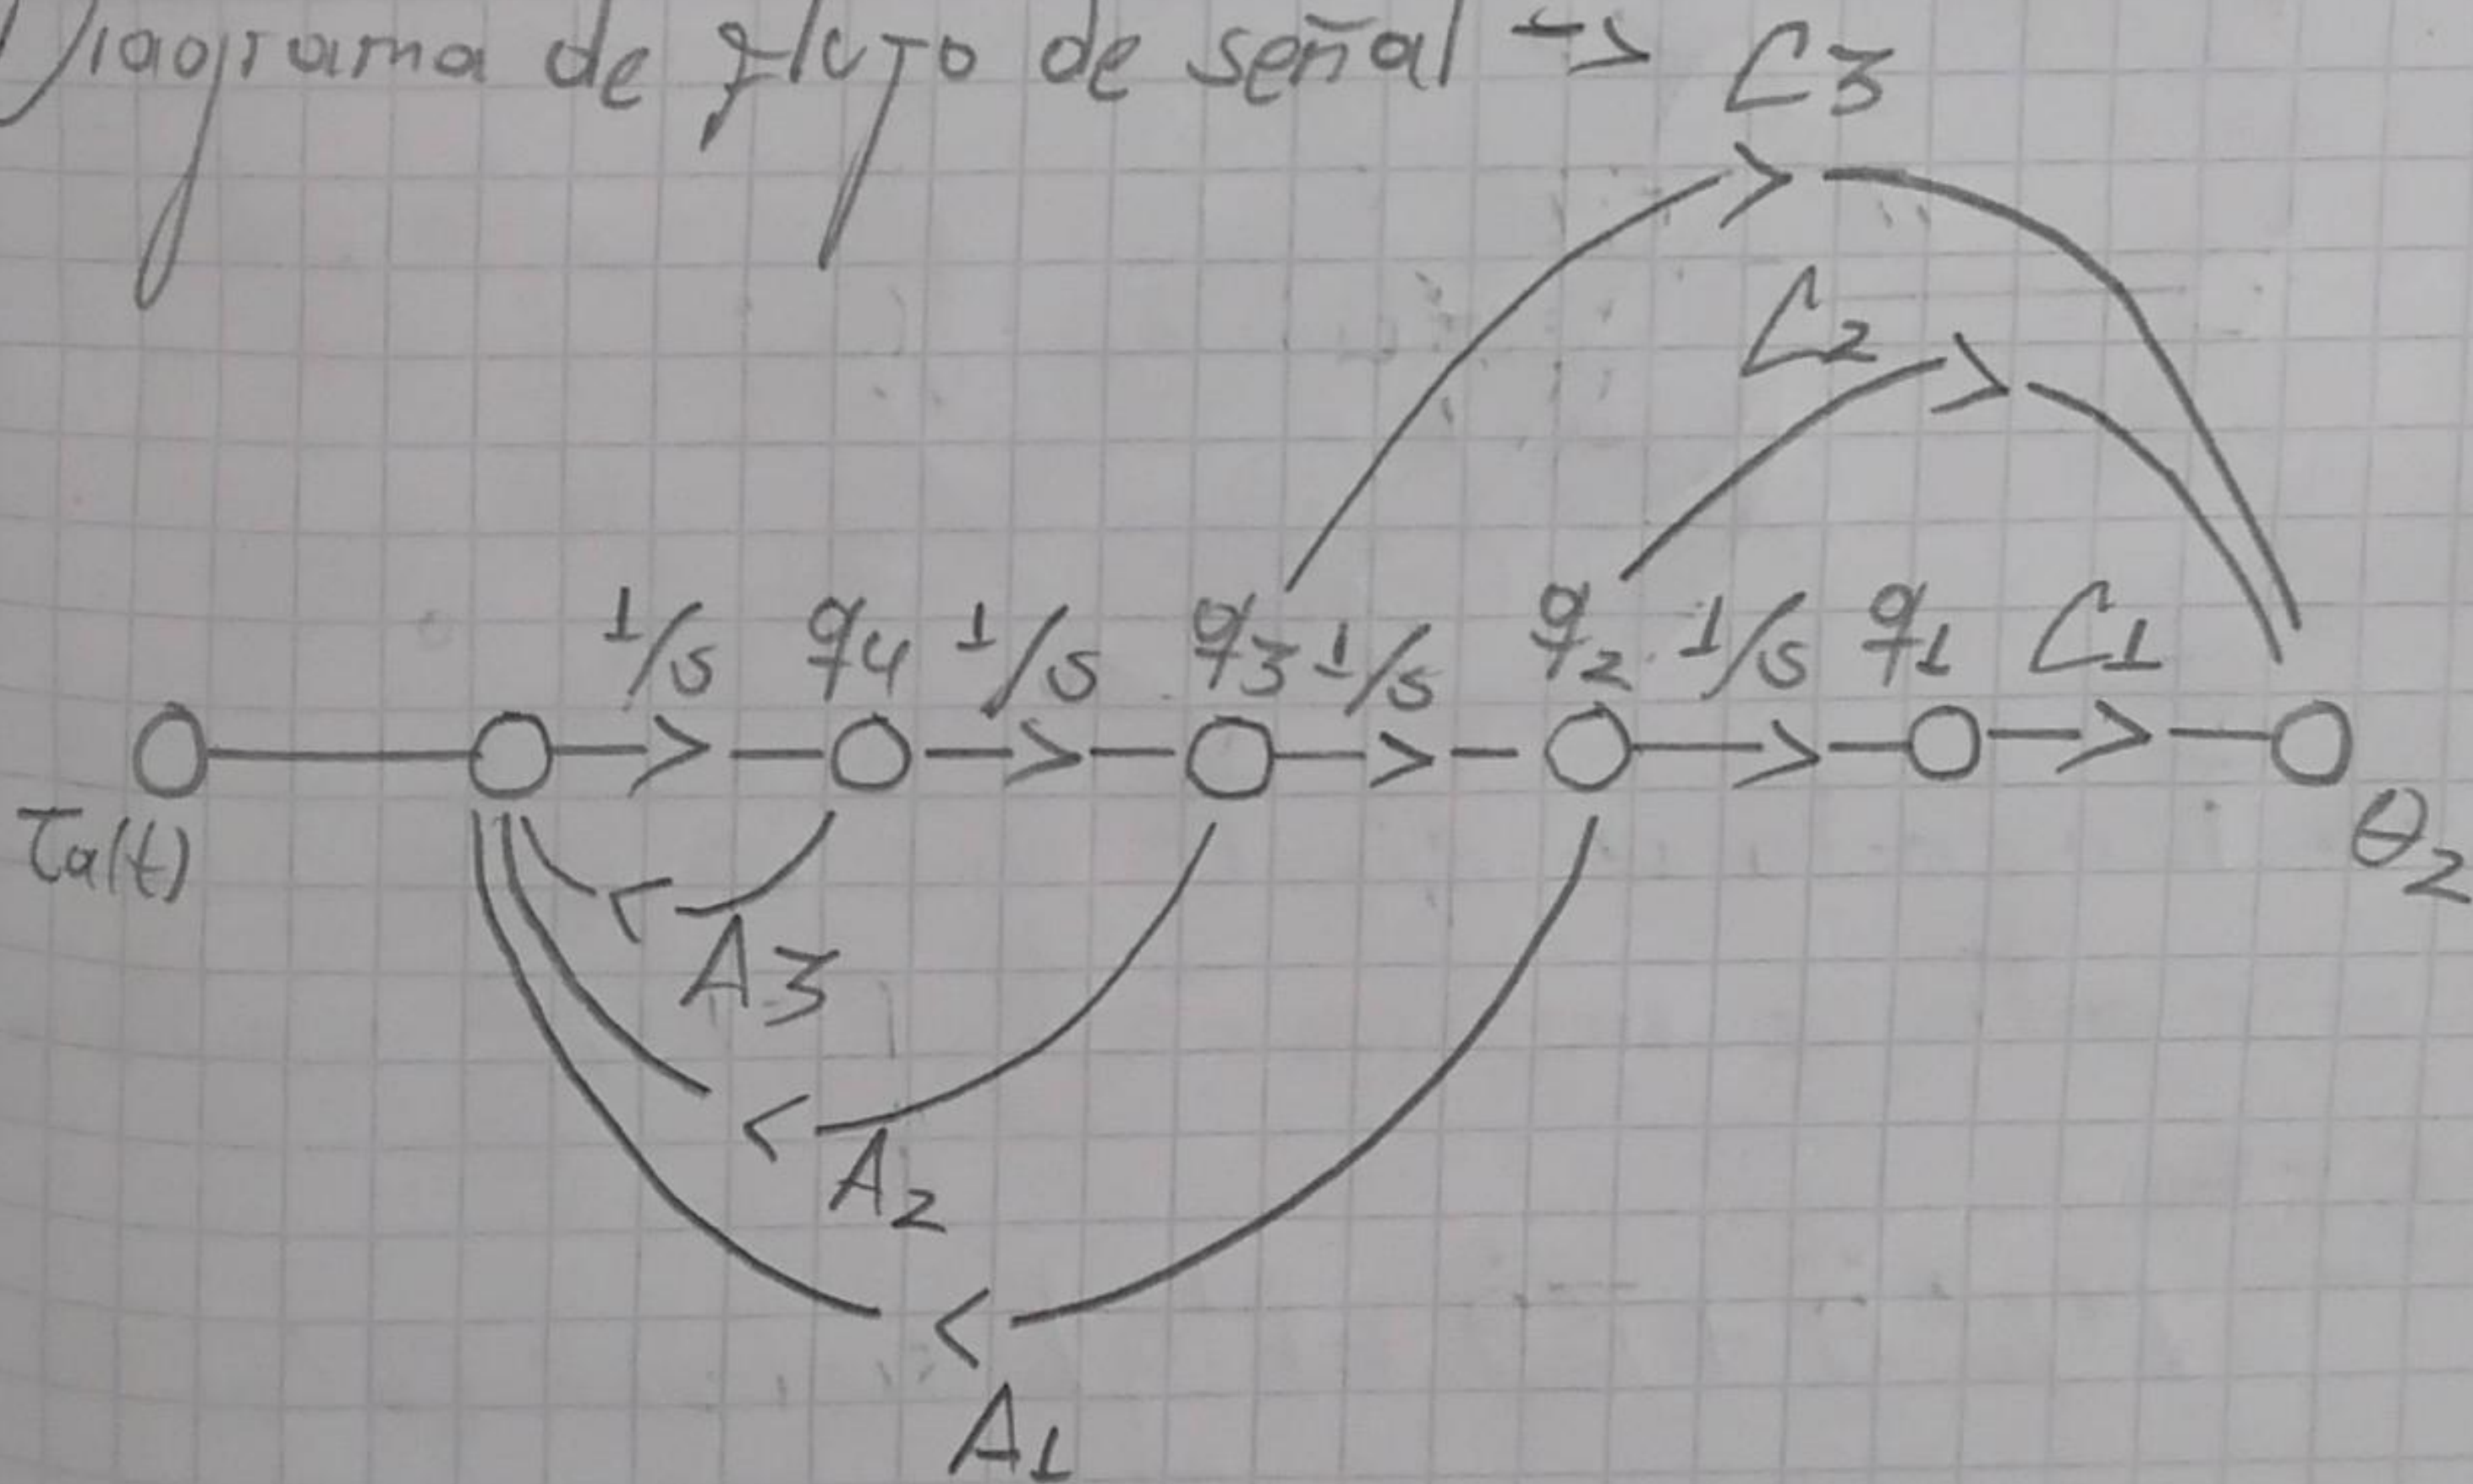 Diagrama de flujo de señal -> C3
C2
1/s q4 1/s q3 1/s q2 1/s q1 C1
τa(t)
θ2
A3
A2
A1